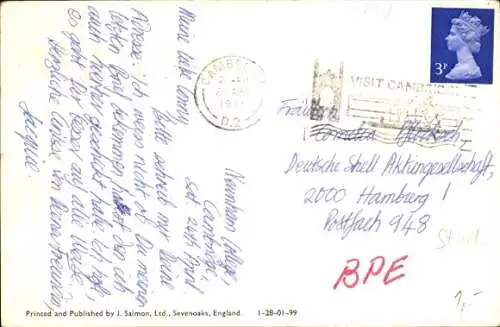 Newnham College,
Cambridge,
Sat 24th April
Meine liebe Conny,
Bitte schreib mir Deine
Adresse: ich weiss nicht ob Du meinen
letzten Brief bekommen hast den ich
auch hierher geschickt habe. Ich hoffe,
es geht Dir Besser auf alle Weise.
Herzliche Grüsse von Deiner Freundin,
Jacquie.
CAMBRIDGE
1971
VISIT CAMBRIDGE
3P
Fräulein
Cornelia
Deutsche Shell Aktiengesellschaft,
2000 Hamburg 1
Postfach 948
BPE
1,-
Printed and Published by J. Salmon, Ltd., Sevenoaks, England. 1-28-01-99